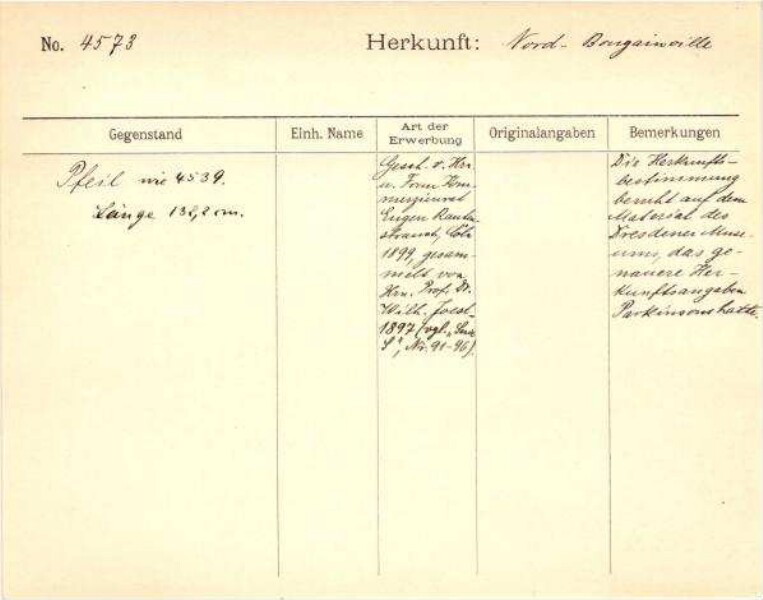 No. 4573 Herkunft: Nord-Bougainville
Gegenstand
Einh. Name
Art der
Erwerbung
Originalangaben
Bemerkungen
Pfeil wie 4539.
Länge 138,2 cm.
Gesch. v. Hrn.
u. Frau Kom-
merzienrat
Eugen Rauten-
strauch, Cöln
1899, gesam-
melt von
Hrn. Prof. Dr.
Wilh. Joest
1897 (vgl. „
S", Nr. 91-96).
Die Herkunfts-
bestimmung
beruht auf dem
Material des
Dresdener Muse-
ums, das ge-
nauere Her-
kunftsangaben
Parkinsons hatte.